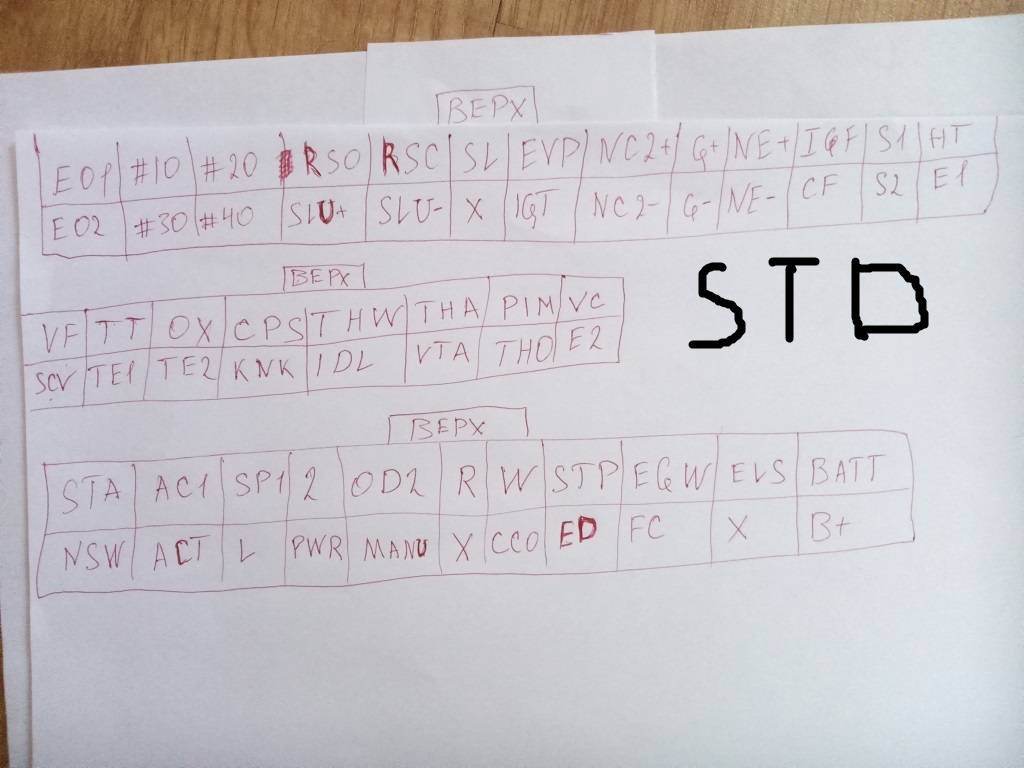 ВЕРХ
E01 #10 #20 RSO RSC SL EVP NC2+ G+ NE+ IGF S1 HT
E02 #30 #40 SLU+ SLU- X IGT NC2- G- NE- CF S2 E1
ВЕРХ
VF TT OX CPS THW THA PIM VC
SCV TE1 TE2 KNK IDL VTA THO E2
STD
ВЕРХ
STA AC1 SP1 2 OD2 R W STP EGW ELS BATT
NSW ACT L PWR MANU X CCO ED FC X B+